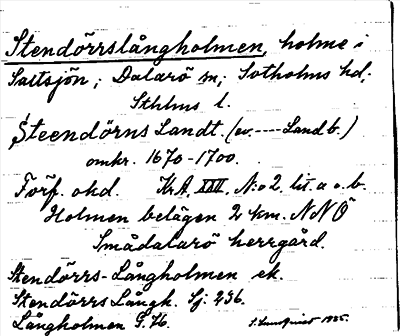 Stendörrslångholmen, holme i
Saltsjön; Dalarö sn; Sotholms hd;
Sthlms l.
Steendörns Landt. (ev.----Landb.)
omkr. 1670-1700.
Förf. okd. Kr.A. XXV, N:o 2. lit. a o. b.
Holmen belägen 2 km. NNÖ
Smådalarö herrgård.
Stendörrs-Långholmen ek.
Stendörrs Långh. Sj: 236.
Långholmen G.